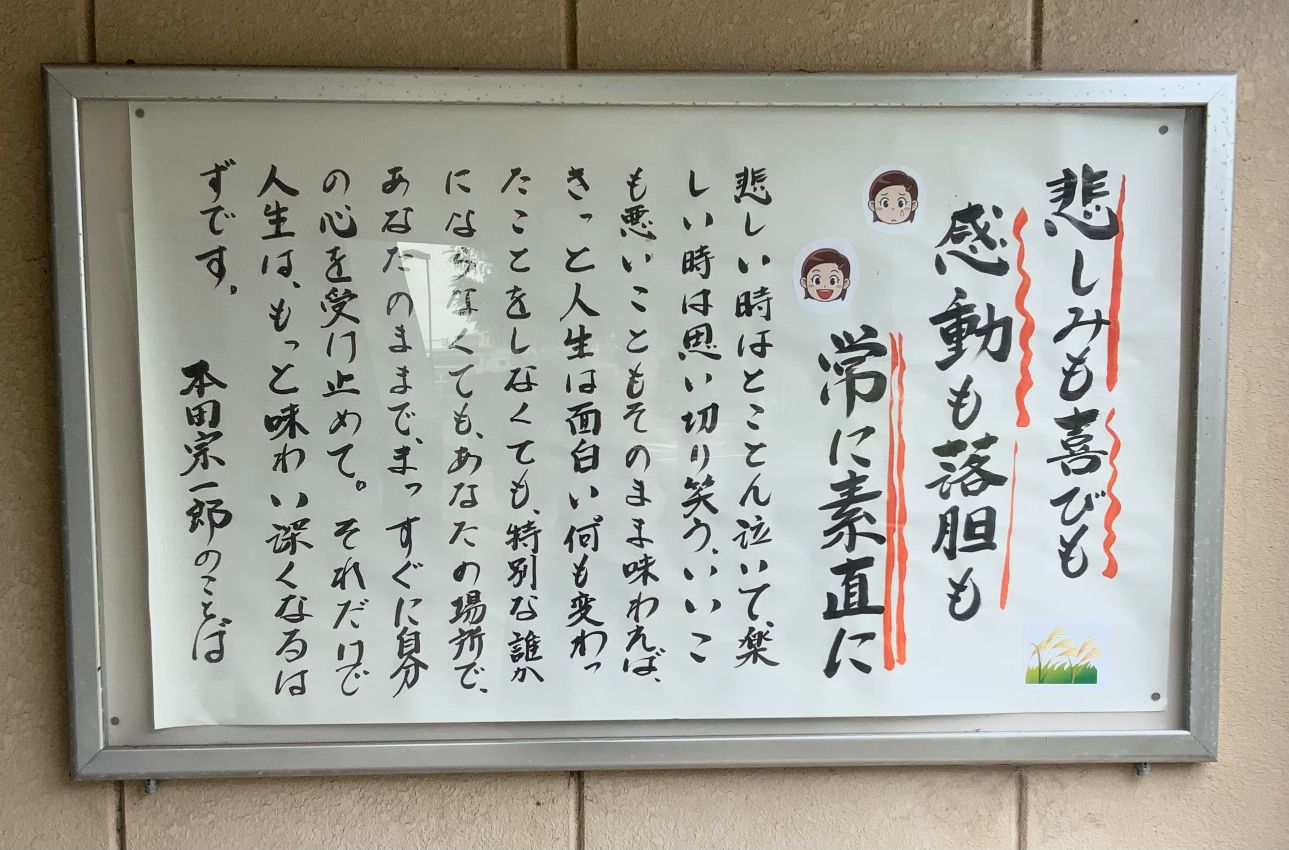 悲しみも喜びも
感動も落胆も
常に素直に
悲しい時はとことん泣いて、楽
しい時は思い切り笑う、いいこ
も悪いこともそのまま味わえば、
きっと人生は面白い。何も変わっ
たことをしなくても、特別な誰か
にならなくても、あなたの場所で、
あなたのままで、まっすぐに自分
の心を受け止めて。それだけで
人生は、もっと味わい深くなるは
ずです。
本田宗一郎のことば